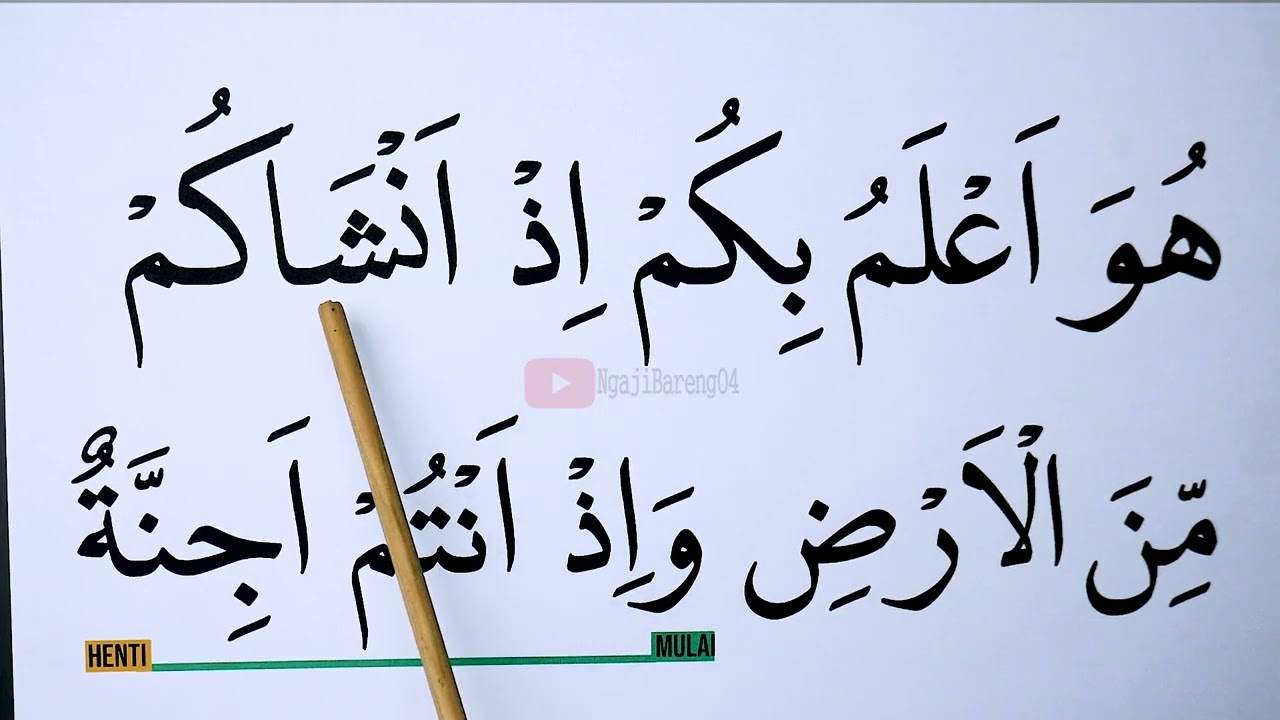 هُوَ اَعْلَمُ بِكُمْ اِذْ اَنْشَاَكُمْ
NgajiBareng04
مِّنَ الْاَرْضِ وَاِذْ اَنْتُمْ اَجِنَّةٌ
HENTI MULAI